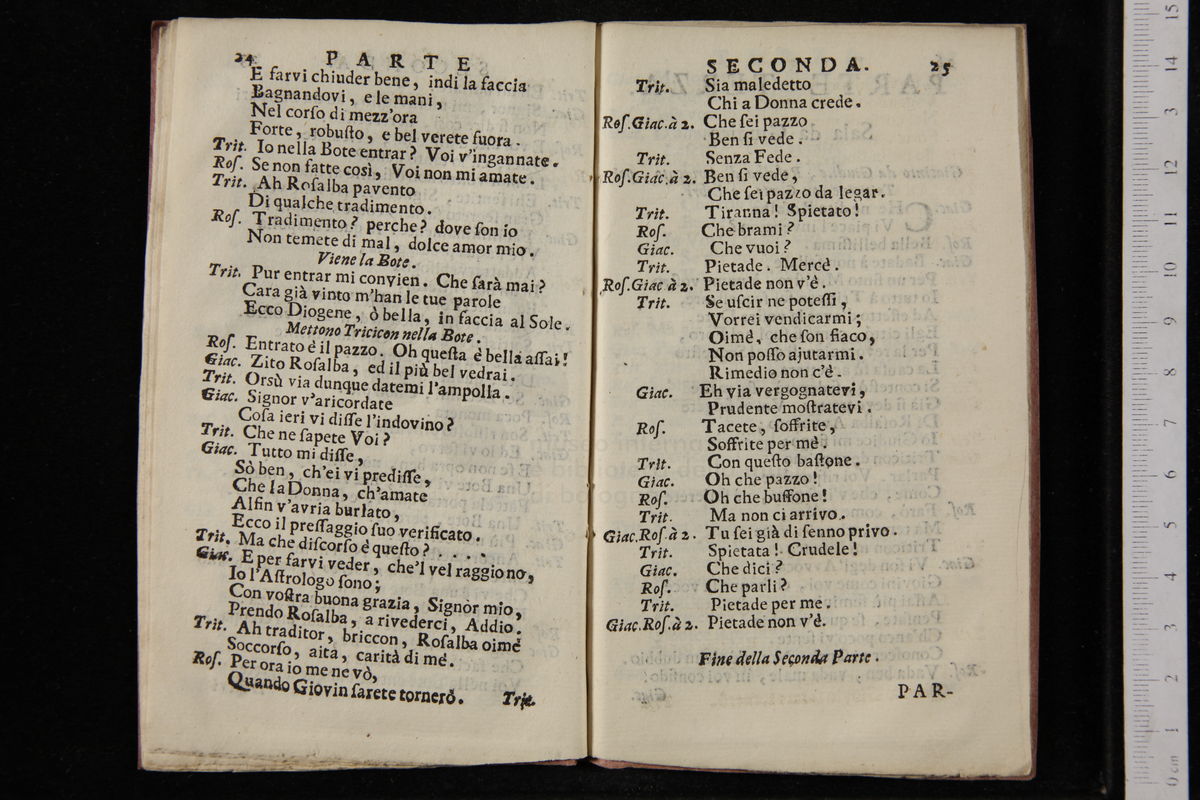 24 PARTE
E farvi chiuder bene, indi la faccia
Bagnandovi, e le mani,
Nel corſo di mezz'ora
Forte, robuſto, e bel verete fuora.
Trit. Io nella Bote entrar? Voi v'ingannate.
Roſ. Se non fatte così, Voi non mi amate.
Trit. Ah Roſalba pavento
Di qualche tradimento.
Roſ. Tradimento? perche? dove ſon io
Non temete di mal, dolce amor mio.
Viene la Bote.
Trit. Pur entrar mi convien. Che ſarà mai?
Cara già vinto m'han le tue parole
Ecco Diogene, ò bella, in faccia al Sole.
Mettono Triticon nella Bote.
Roſ. Entrato è il pazzo. Oh queſta è bella aſſai!
Giac. Zito Roſalba, ed il più bel vedrai.
Trit. Orsù via dunque datemi l'ampolla.
Giac. Signor v'aricordate
Coſa ieri vi diſſe l'indovino?
Trit. Che ne ſapete Voi?
Giac. Tutto mi diſſe,
Sò ben, ch'ei vi prediſſe,
Che la Donna, ch'amate
Alfin v'avria burlato,
Ecco il preſſaggio ſuo verificato.
Trit. Ma che diſcorſo è queſto? . . . .
Giac. E per farvi veder, che'l vel raggiono,
Io l'Aſtrologo ſono;
Con voſtra buona grazia, Signor mio,
Prendo Roſalba, a rivederci, Addio.
Trit. Ah traditor, briccon, Roſalba oimè
Soccorſo, aita, carità di mé.
Roſ. Per ora io me ne vò,
Quando Giovin ſarete tornerò. Trit.
SECONDA. 25
Trit. Sia maledetto
Chi a Donna crede.
Roſ.Giac.à 2. Che ſei pazzo
Ben ſi vede.
Trit. Senza Fede.
Roſ.Giac.à 2. Ben ſi vede,
Che ſei pazzo da legar.
Trit. Tiranna! Spietato!
Roſ. Che brami?
Giac. Che vuoi?
Trit. Pietade. Mercè.
Roſ.Giac à 2. Pietade non v'è.
Trit. Se uſcir ne poteſſi,
Vorrei vendicarmi;
Oimè, che ſon fiaco,
Non poſſo ajutarmi.
Rimedio non c'è.
Giac. Eh via vergognatevi,
Prudente moſtratevi.
Roſ. Tacete, ſoffrite,
Soffrite per mè.
Trit. Con queſto baſtone.
Giac. Oh che pazzo!
Roſ. Oh che buffone!
Trit. Ma non ci arrivo.
Giac.Roſ.à 2. Tu ſei già di ſenno privo.
Trit. Spietata! Crudele!
Giac. Che dici?
Roſ. Che parli?
Trit. Pietade per me.
Giac.Roſ.à 2. Pietade non v'è.
Fine della Seconda Parte.
PAR-
15
14
13
12
11
10
9
8
7
6
5
4
3
2
1
0 cm